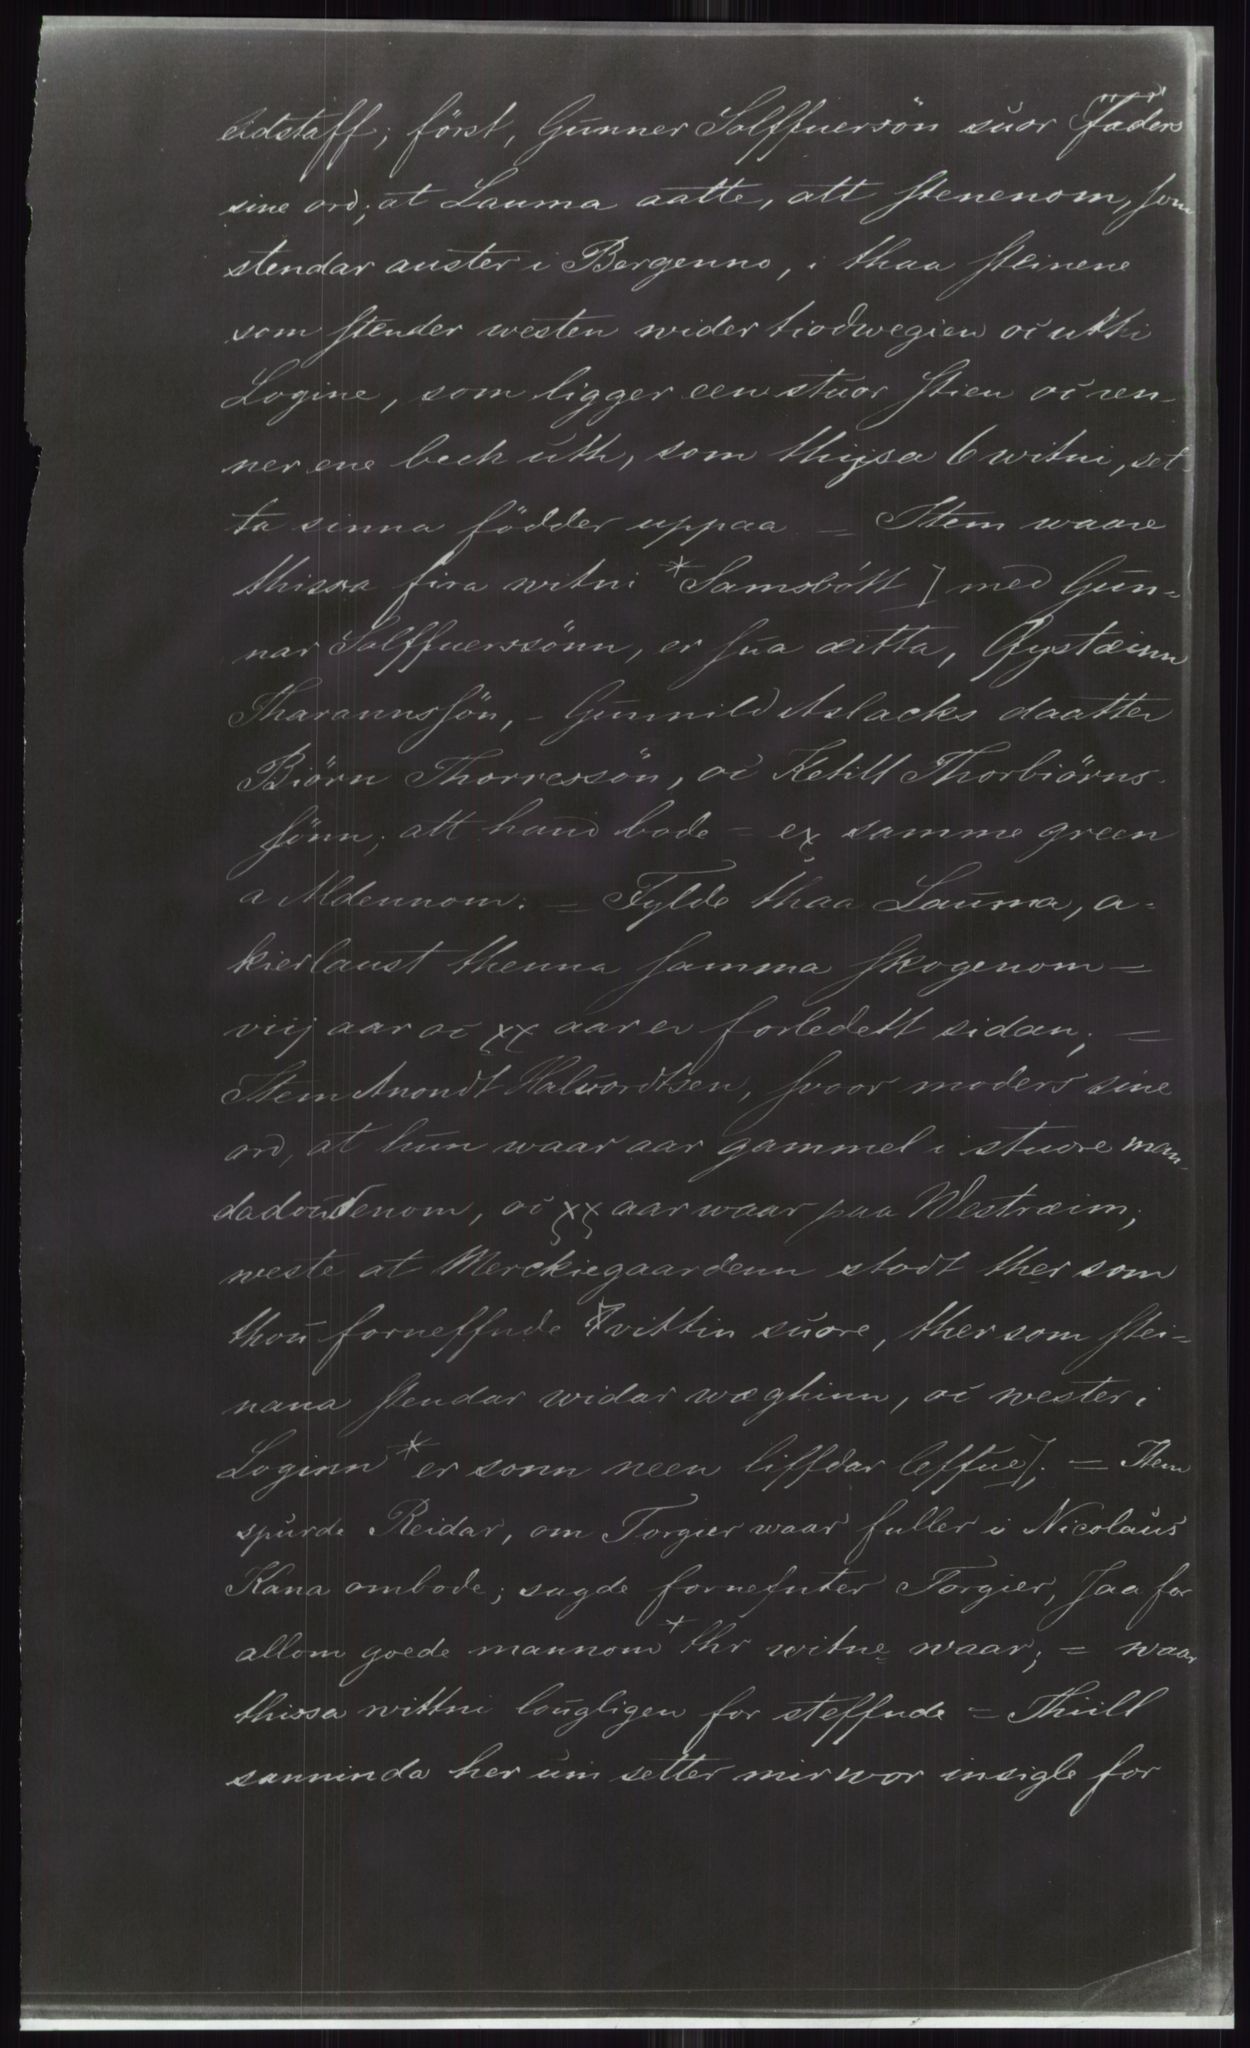 eidstaff; först, Gunner Solffuersön suor faders
sine ord; at Lauma aatte, att stenenom, som
stendar auster i Bergenno, i thaa steinene
som stender westen wider tiodwegien oc utt i
Logine, som ligger een stuor stien oc ren-
ner ene beck uth, som thiysa 6 witni, set-
ta sinna födder uppaa = Item waare
thissa fira witni * Samsbótt] med Gun-
nar Solffuerssönn, er sua æitta, Øystæinn
Tharannssön, - Gunnild Aslacks daatter
Biörn Thorressön, oc Ketill Thorbiörns-
sönn; att hand bode = ex samme green
a Aldennom: = Fylde thaa Lauma, a-
kierlaust thenna samma skogenom =
viij aar oc xx aar er forledett sidan; =
Item Anondt Haluordtsen, svoor moders sine
ord, at hun waar aar gammel i stuore man-
dadoudenom, oc xx aar waar paa Westræim;
weste at Merckiegaardenn stodt ther som
thou forneffnde vittin suore, ther som stei-
nana stendar widar wæghinn, oc wester i
Loginn * er sonn neen liffdar leffue]; = Item
spurde Reidar, om Torgier waar fuller i Nicolaus
Kana ombode; sagde fornefnter Torgier, Jaa for
allom goede mannom * thr witne waar; = waar
thissa wittni lougligen for steffnde = Thiill
sanninda her um setter mir wor insigle for